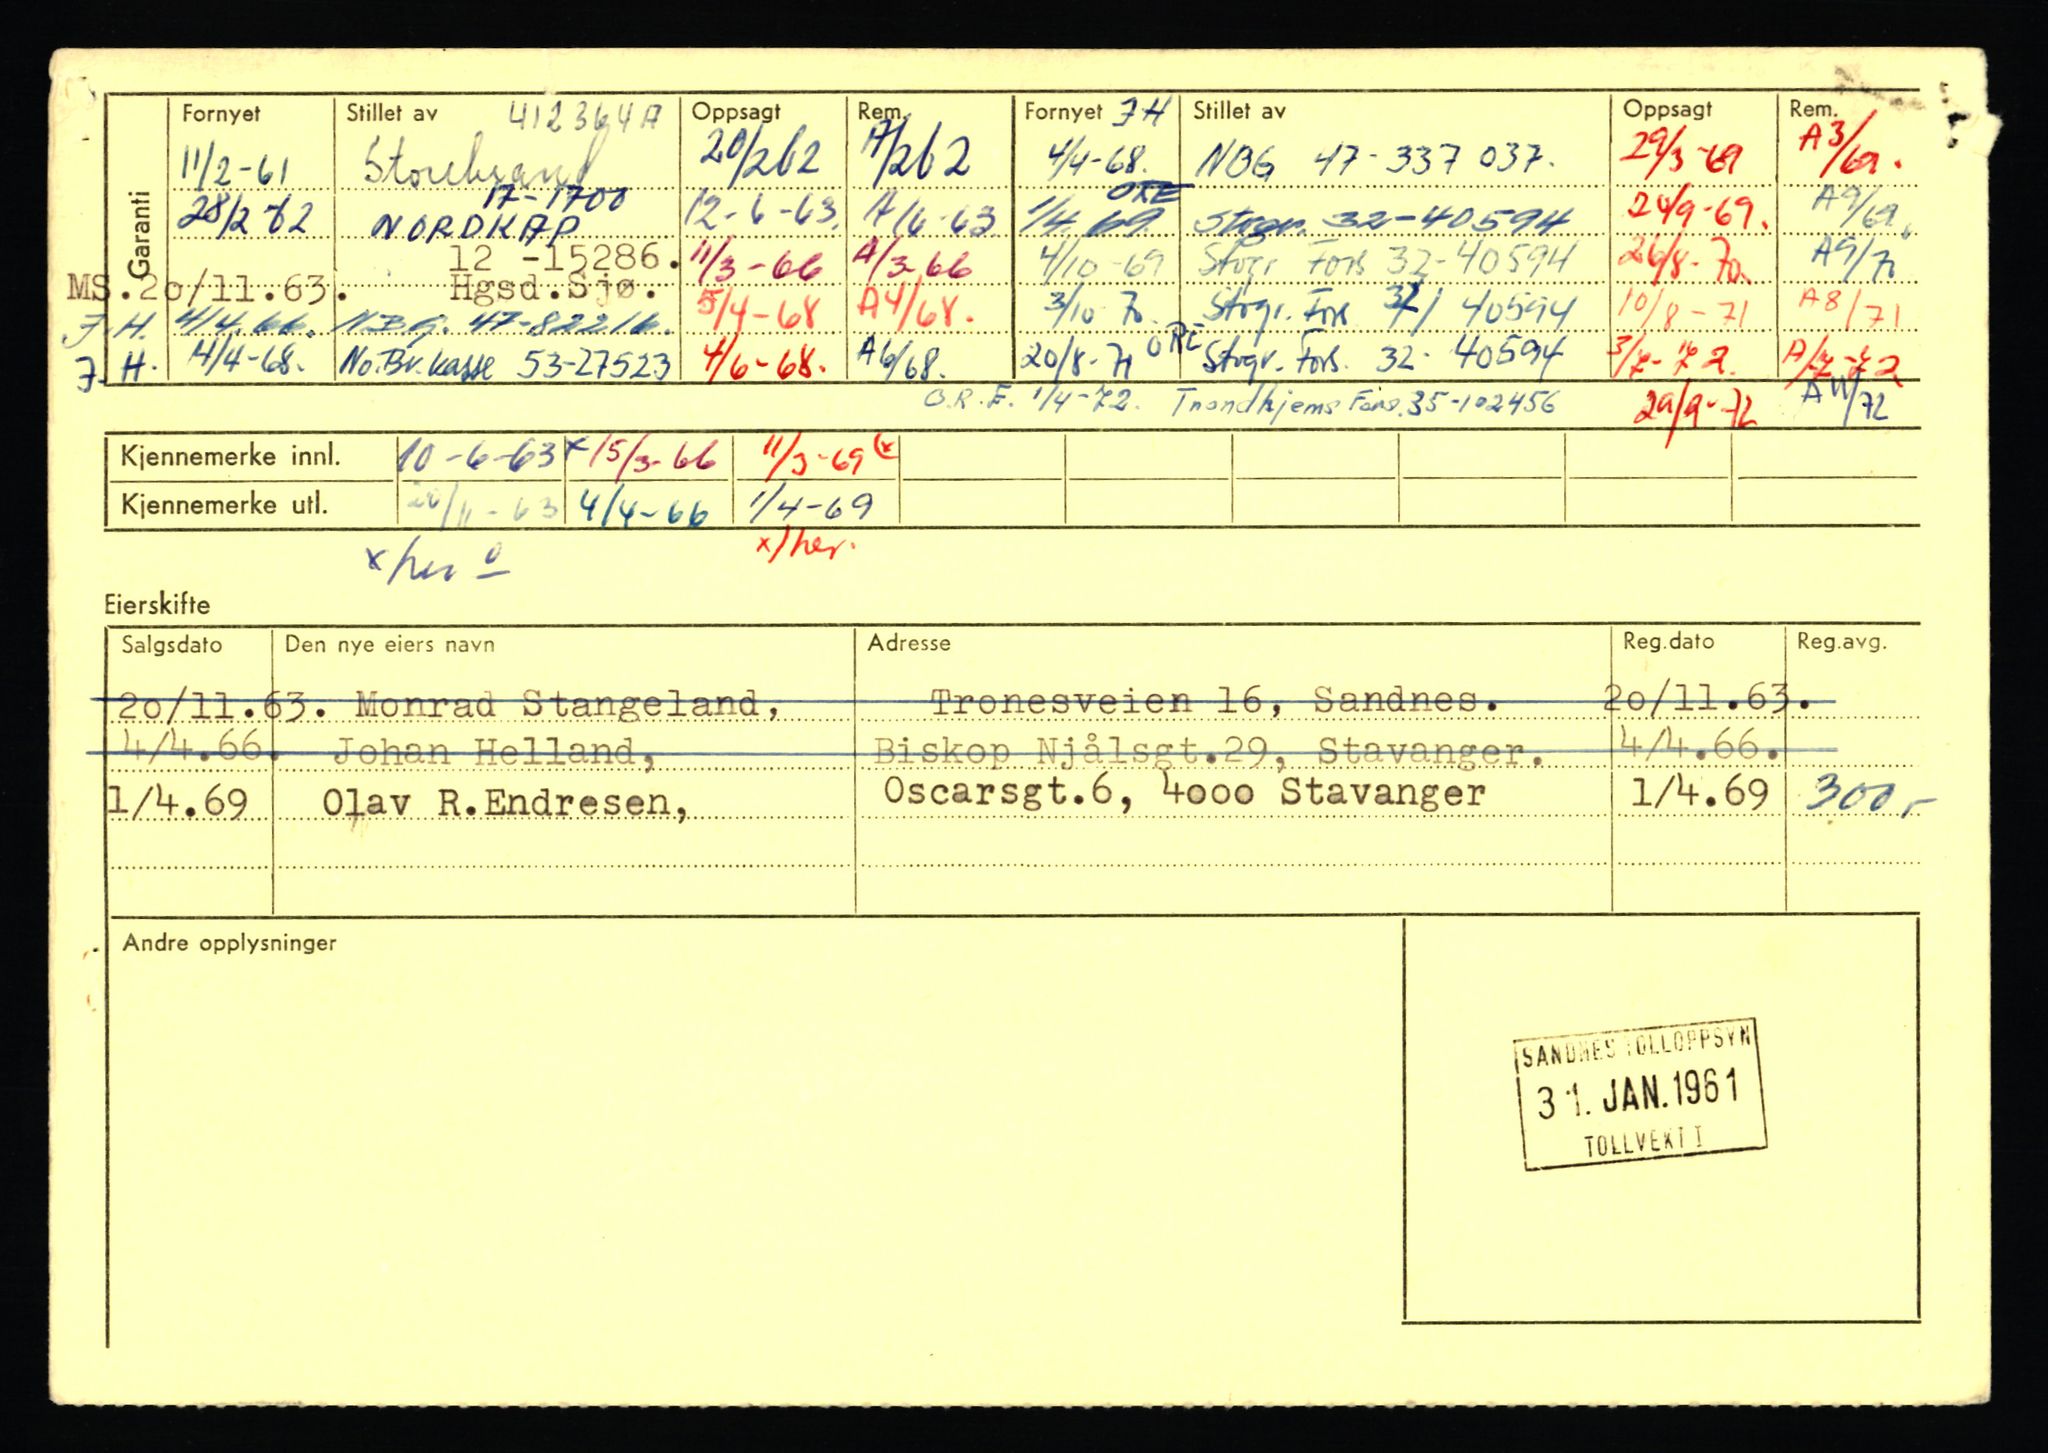 Garanti
Fornyet Stillet av 412364A Oppsagt Rem. Fornyet JH Stillet av Oppsagt Rem.
11/2-61 Storebrand 20/262 A/262 4/4-68. NBG 47-337 037. 29/3-69 A3/69.
28/2-62 17-1700 NORDKAP 12-6-63. A/6-63 ORE 1/4 69 Stvgr. 32-40594 24/9-69. A9/69.
MS. 20/11.63. 12 -15286. Hgsd.Sjø. 11/3-66 A/3-66 4/10-69 Stvgr. Fors 32-40594 26/8-70. A9/70
J.H. 4/4.66. N.B.G. 47-82216. 5/4-68 A4/68. 3/10 70. Stvgr. Fors 32/ 40594 10/8-71 A8/71
J.H. 4/4-68. No.Br.kasse 53-27523 4/6-68. A6/68. 20/8-71 ORE Stvgr. Fors. 32- 40594
O.R.E. 1/4-72. Trondhjems Fors. 35-102456 29/9-72 A11/72
Kjennemerke innl. 10-6-63 x 15/3-66 11/3-69 (x
Kjennemerke utl. 20/11-63 4/4-66 1/4-69
x/her x)her.
Eierskifte
Salgsdato Den nye eiers navn Adresse Reg.dato Reg.avg.
20/11.63. Monrad Stangeland, Tronesveien 16, Sandnes. 20/11.63.
4/4.66. Johan Helland, Biskop Njålsgt.29, Stavanger. 4/4.66.
1/4.69 Olav R.Endresen, Oscarsgt.6, 4000 Stavanger 1/4.69 300,-
Andre opplysninger
SANDNES TOLLOPPSYN
31. JAN. 1961
TOLLVEKT I